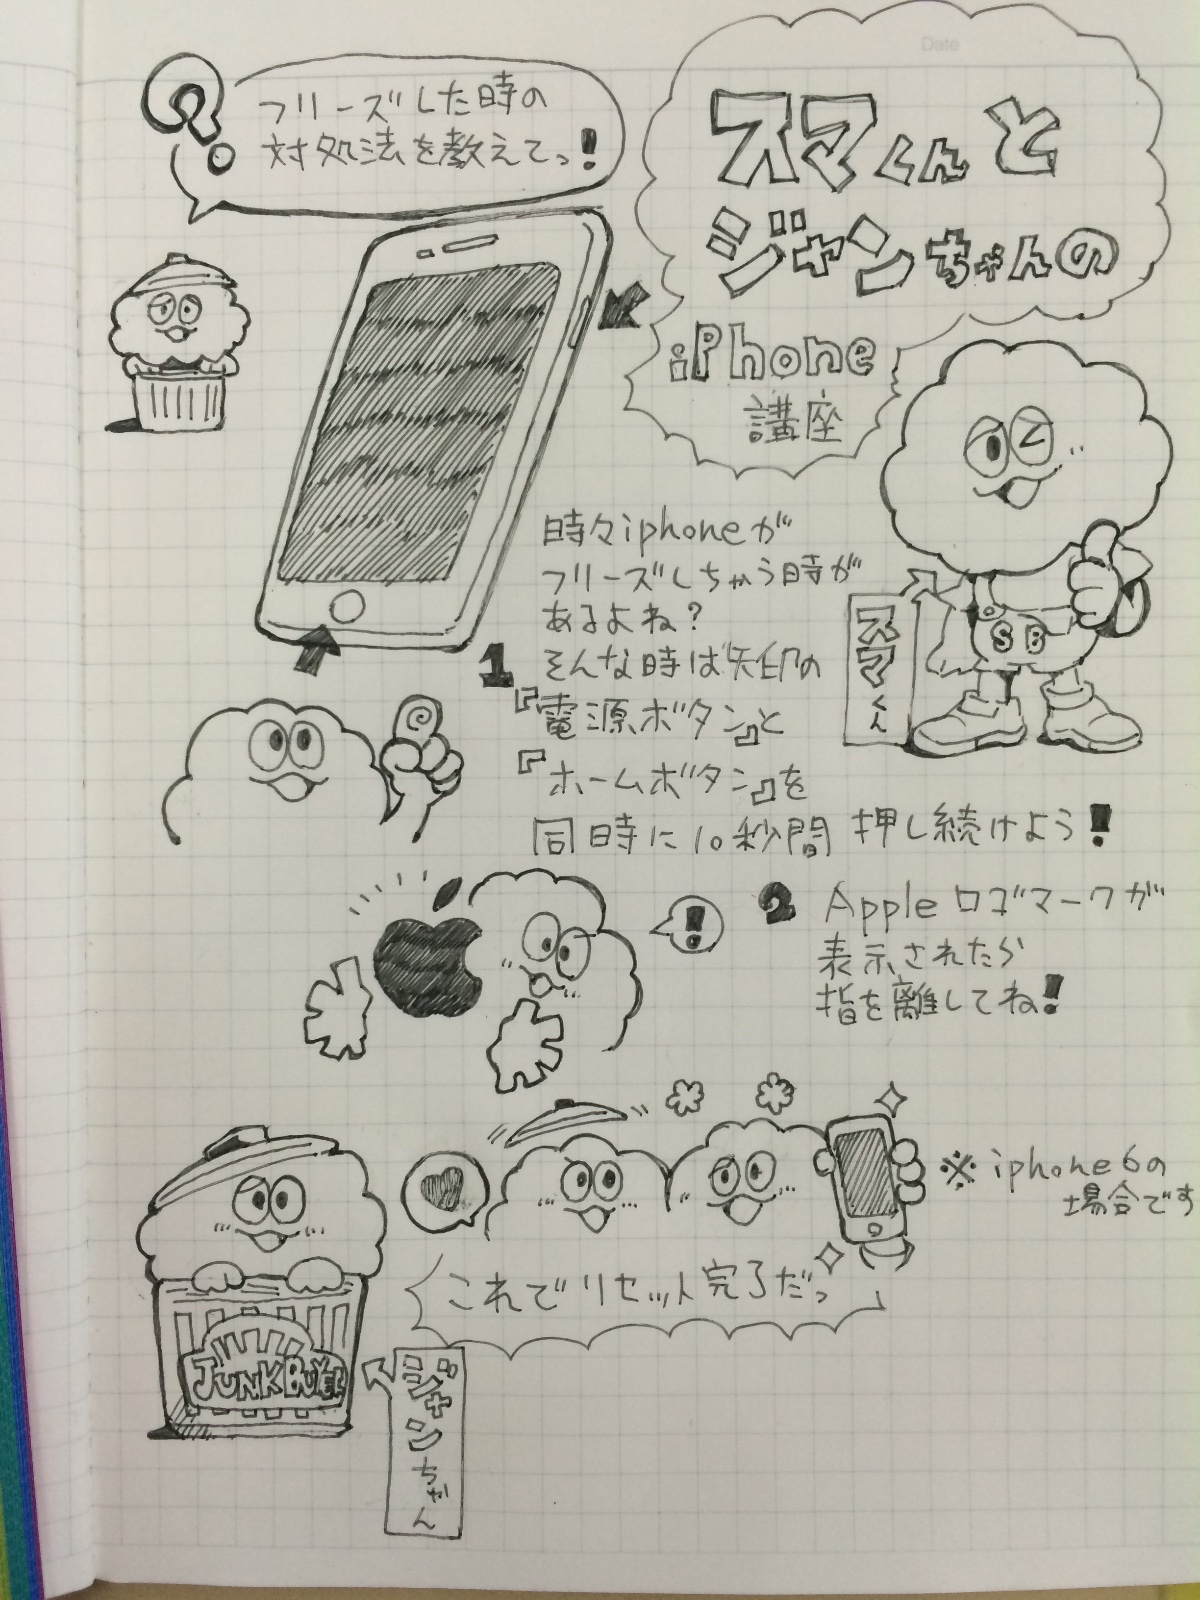 Date
フリーズした時の
対処法を教えてっ!
スマくんと
ジャンちゃんの
iPhone
講座
時々iphoneが
フリーズしちゃう時が
あるよね?
1 そんな時は矢印の
『電源ボタン』と
『ホームボタン』を
同時に10秒間 押し続けよう!
スマくん
SB
!
2 Appleロゴマークが
表示されたら
指を離してね!
※iphone6の
場合です
これでリセット完了だっ
JUNK
ジャンちゃん